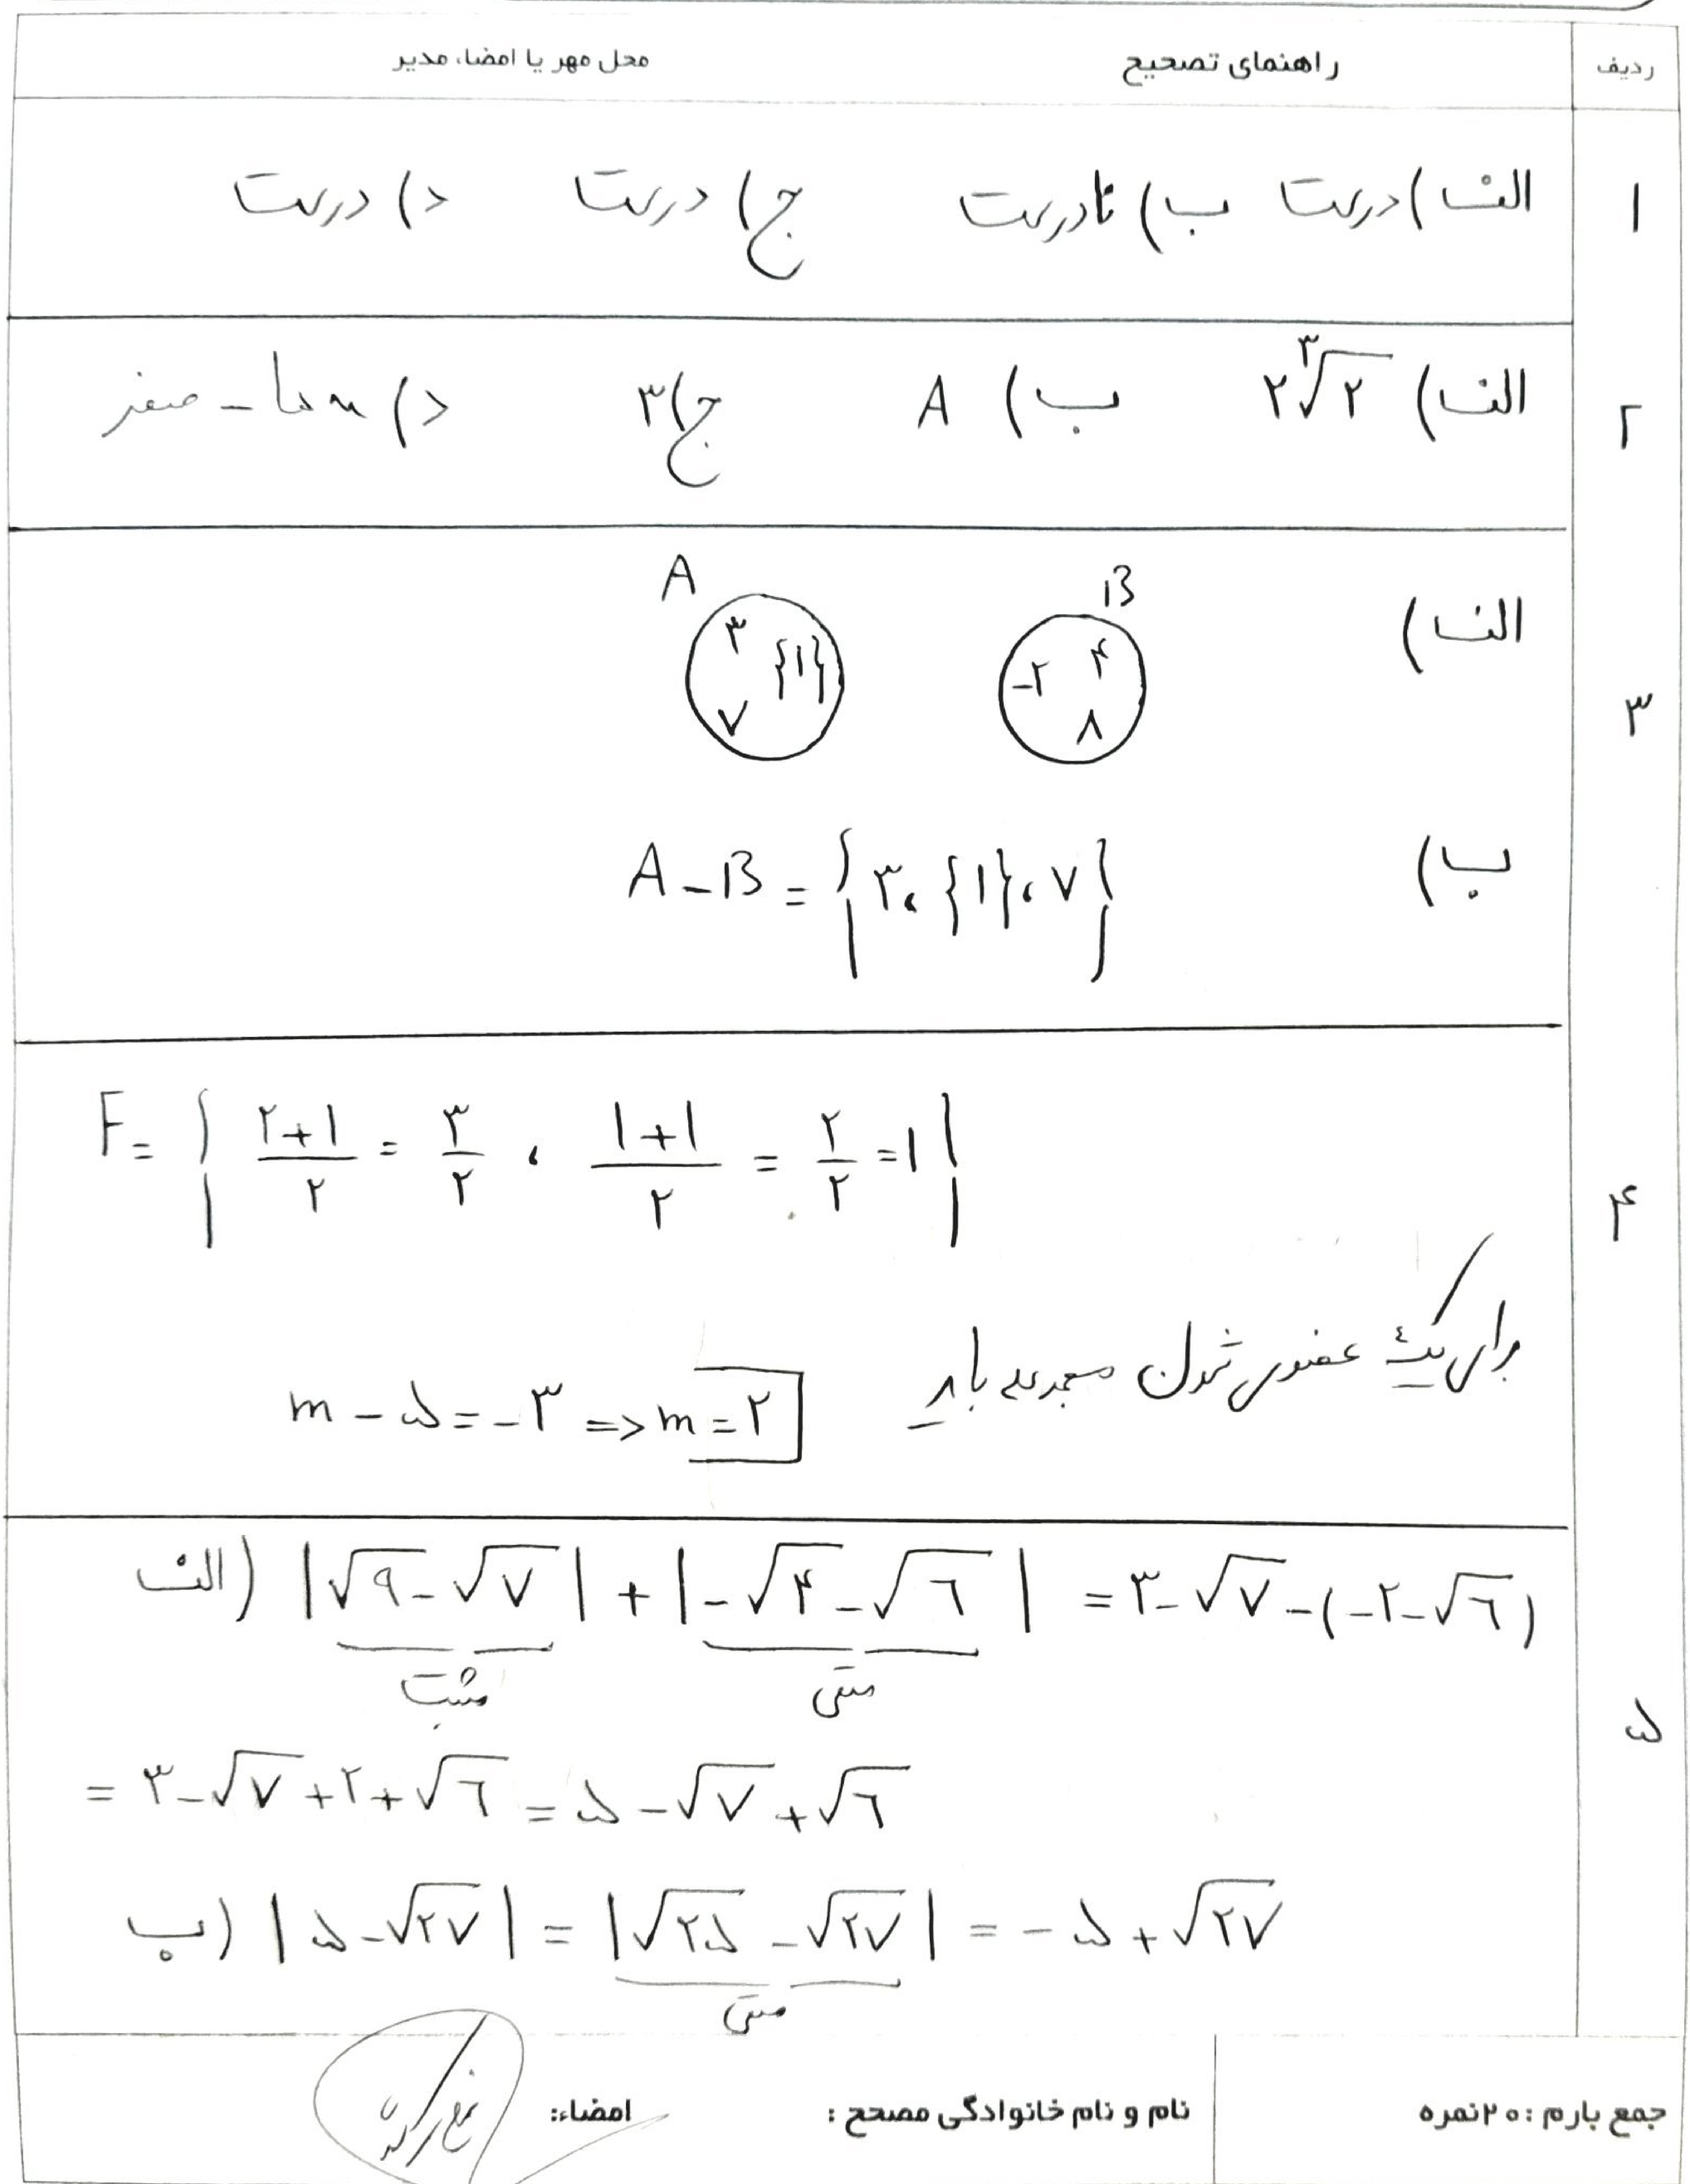 ردیف راهنمای تصحیح محل مهر یا امضاء مدیر
۱ الف) درست ب) نادرست ج) درست د) درست
۲ الف) ۲∛۲ ب) A ج) ۳ د) xها - صفر
۳ الف) A ۳ {۱} ۷ B -۲ ۴ ۸
ب) A - B = {۳، {۱}، ۷}
۴ F = { (۲+۱)/۲ = ۳/۲ ، (۱+۱)/۲ = ۲/۲ = ۱ }
برای یک عضوی شدن مجموعه باید m - ۵ = -۳ => m = ۲
۵ الف) |√۹ - √۷| + |-√۴ - √۶| = ۳ - √۷ - (-۲ - √۶)
مثبت منفی
= ۳ - √۷ + ۲ + √۶ = ۵ - √۷ + √۶
ب) |۵ - √۲۷| = |√۲۵ - √۲۷| = -۵ + √۲۷
منفی
جمع بارم : ۲۰ نمره نام و نام خانوادگی مصحح : امضاء: